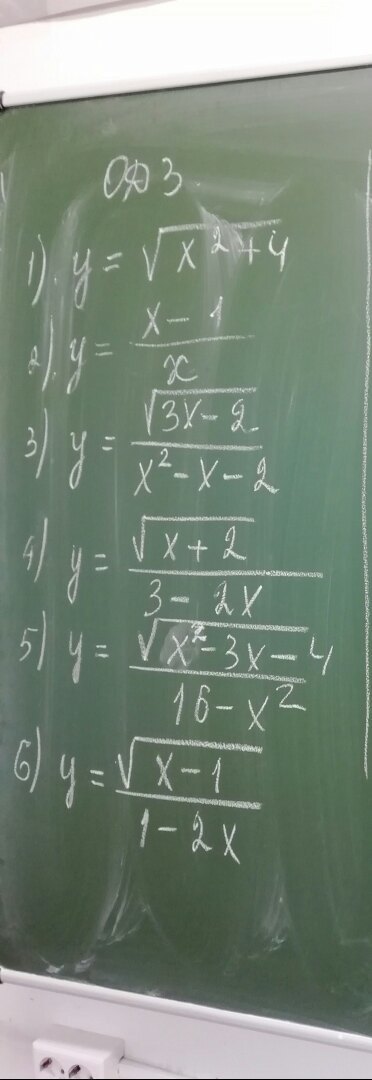 ОДЗ
1). y = √(x² + 4)
2). y = (x - 1)/x
3) y = √(3x - 2)/(x² - x - 2)
4) y = √(x + 2)/(3 - 2x)
5) y = √(x² - 3x - 4)/(16 - x²)
6) y = √(x - 1)/(1 - 2x)